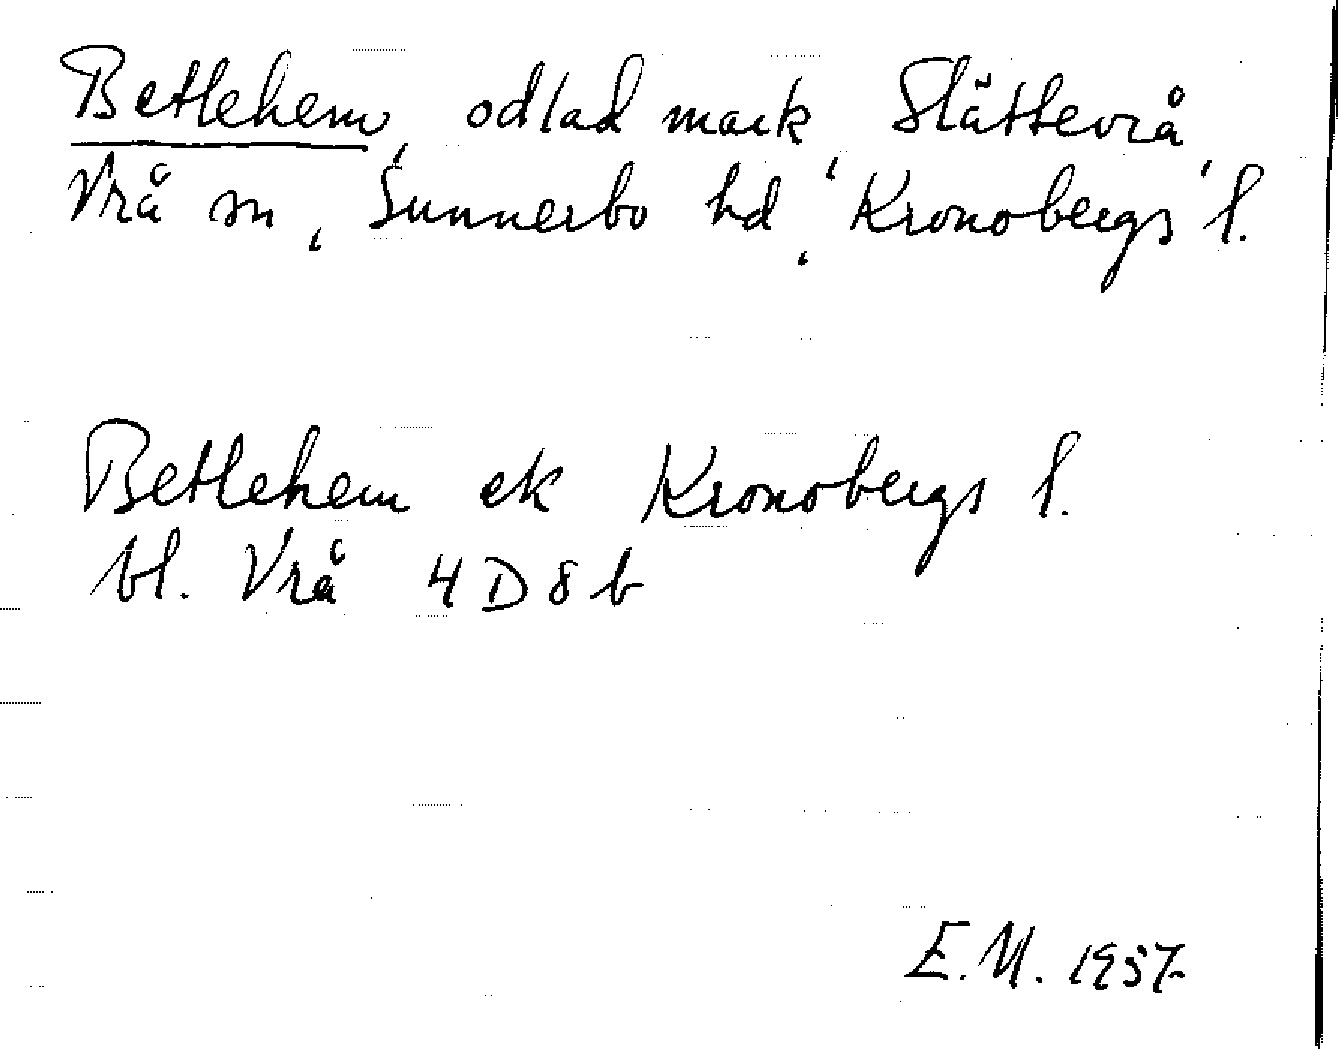 Betlehem, odlad mark, Slättevrå,
Vrå sn, Sunnerbo hd, Kronobergs l.
Betlehem ek Kronobergs l.
bl. Vrå 4 D 8 b
E.M. 1957